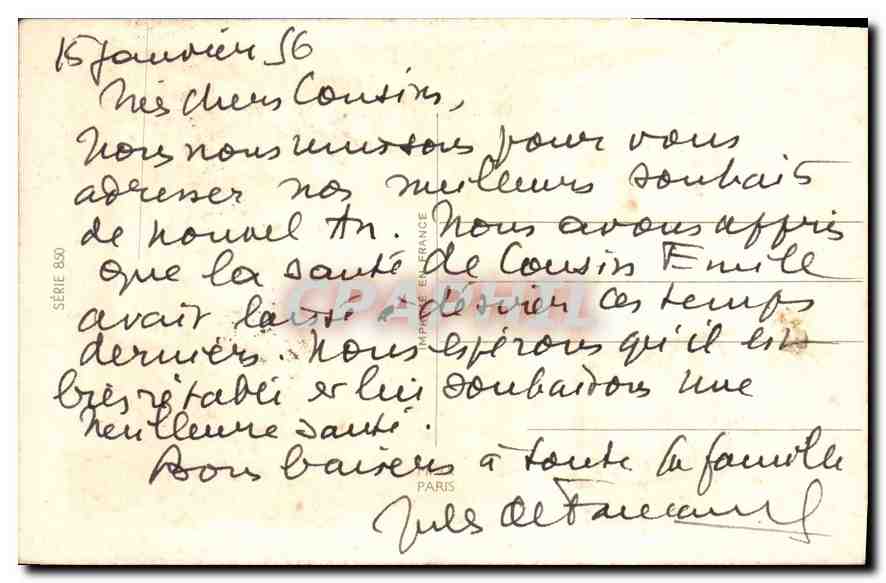 15 Janvier 56
Mes chers Cousins,
Nous nous unissons pour vous
adresser nos meilleurs souhaits
de nouvel An. Nous avons appris
que la santé de Cousin Emile
avait laissé à désirer ces temps
derniers. Nous espérons qu'il est
bien rétabli et lui souhaitons une
meilleure santé.
Bons baisers à toute la famille
Jules
SÉRIE 850
IMPRIMÉ EN FRANCE
PARIS
CPAPHIL